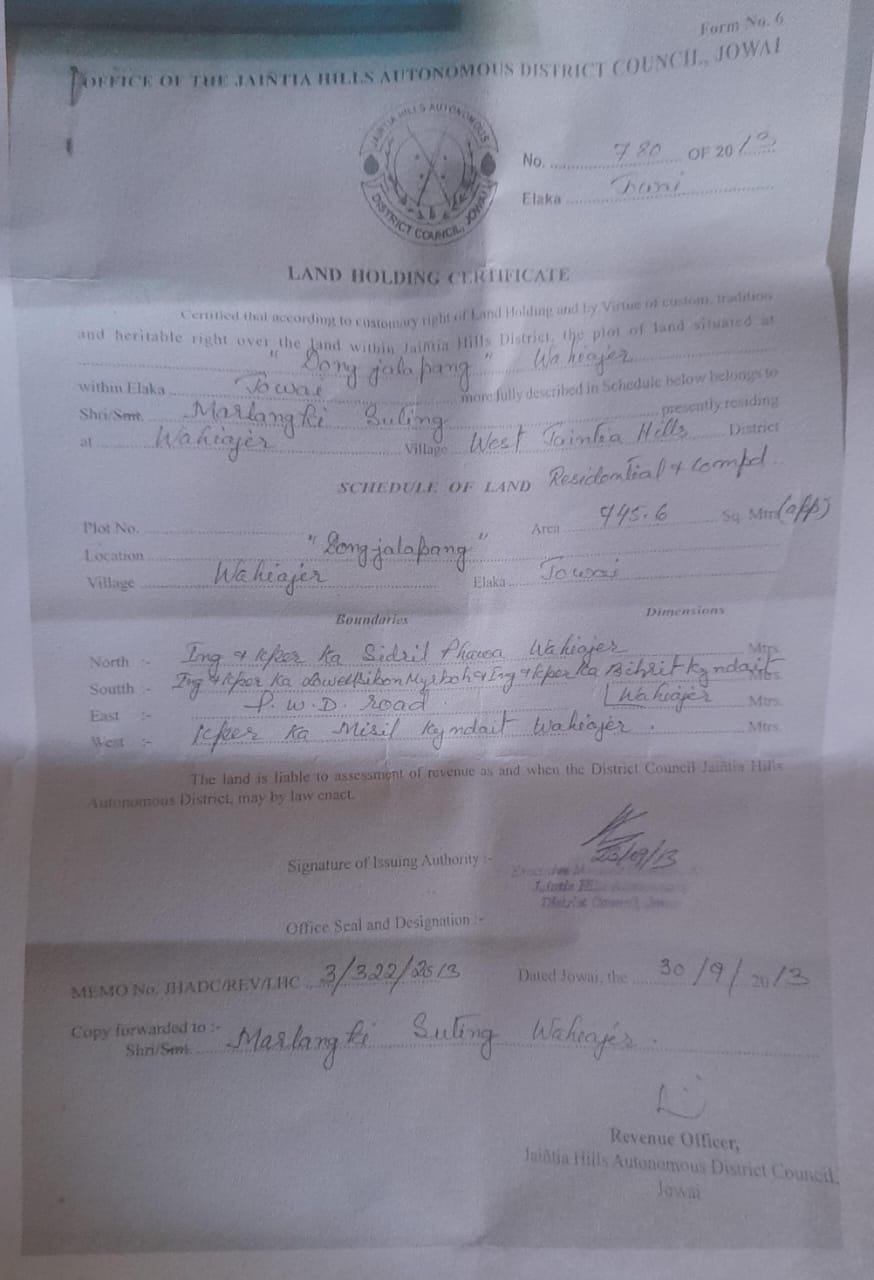 Form No. 6
OFFICE OF THE JAIÑTIA HILLS AUTONOMOUS DISTRICT COUNCIL, JOWAI
JAIÑTIA HILLS AUTONOMOUS
DISTRICT COUNCIL, JOWAI
No. 780 OF 2013
Elaka
LAND HOLDING CERTIFICATE
Certified that according to customary right of Land Holding and by Virtue of custom, tradition
and heritable right over the land within Jaiñtia Hills District, the plot of land situated at
"Dongjalapang" Wahiajer
within Elaka Jowai more fully described in Schedule below belongs to
Shri/Smt. Marlangki Suting presently residing
at Wahiajer Village West Jaintia Hills District
SCHEDULE OF LAND Residential & Compd.
Plot No. Area 945.6 Sq. Mtr (app)
Location "Dongjalapang"
Village Wahiajer Elaka Jowai
Boundaries Dimensions
North :- Ing & Kper Ka Sidril Phawa Wahiajer Mtrs.
Soutth :- Ing & Kper Ka & Ing & Kper Ka Bihrit Kyndait Mtrs.
Wahiajer
East :- P.W.D. road Mtrs.
West :- Kper Ka Misil Kyndait Wahiajer. Mtrs.
The land is liable to assessment of revenue as and when the District Council Jaiñtia Hills
Autonomous District, may by law enact.
Signature of Issuing Authority :-
/09/13
District Council,
Office Seal and Designation :-
MEMO No. JHADC/REV/LHC 3/322/2013 Dated Jowai, the 30/9/2013
Copy forwarded to :-
Shri/Smt. Marlangki Suting Wahiajer.
Revenue Officer,
Jaiñtia Hills Autonomous District Council,
Jowai